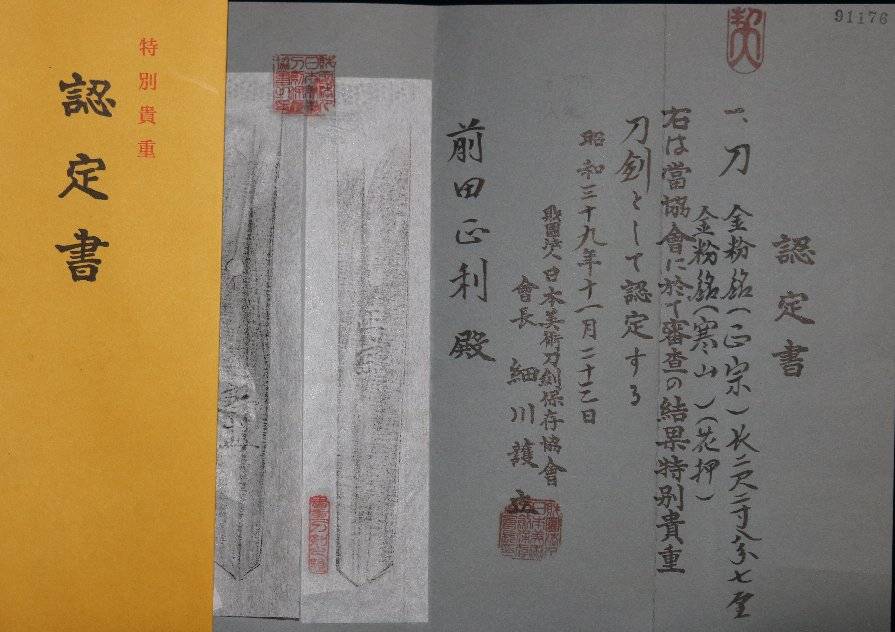 91176
認定書
一、刀 金粉銘(正宗)長二尺二寸八分七厘
金粉銘(寒山)(花押)
右は當協會に於て審査の結果特別貴重
刀剣として認定する
昭和三十九年十一月二十三日
財團法人日本美術刀剣保存協會
會長 細川護立
前田正利殿
特別貴重
認定書